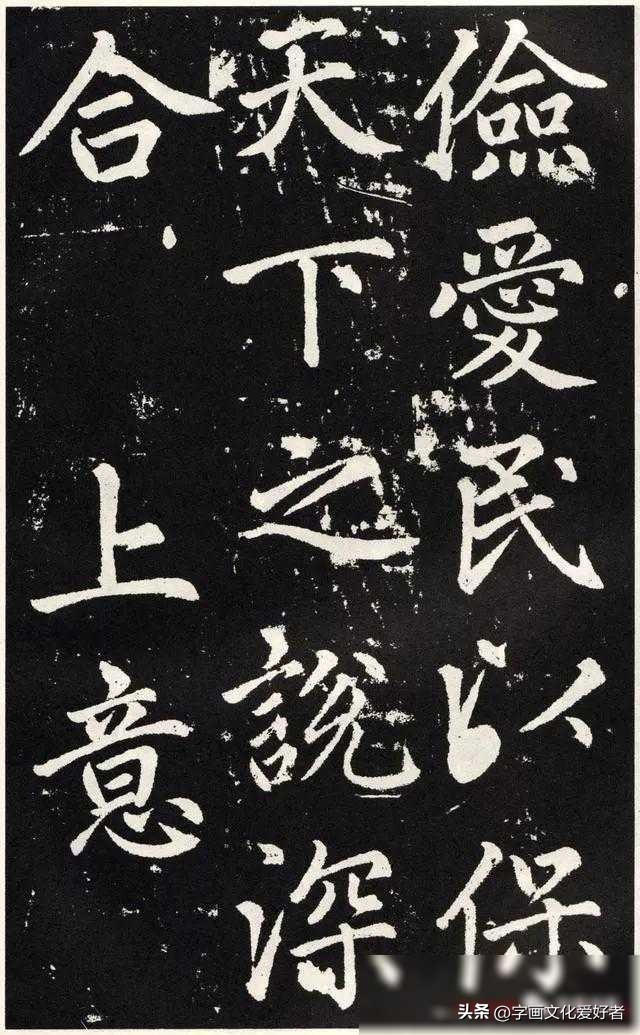 儉愛民以保
天下之說深
合 上意
头条 @字画文化爱好者